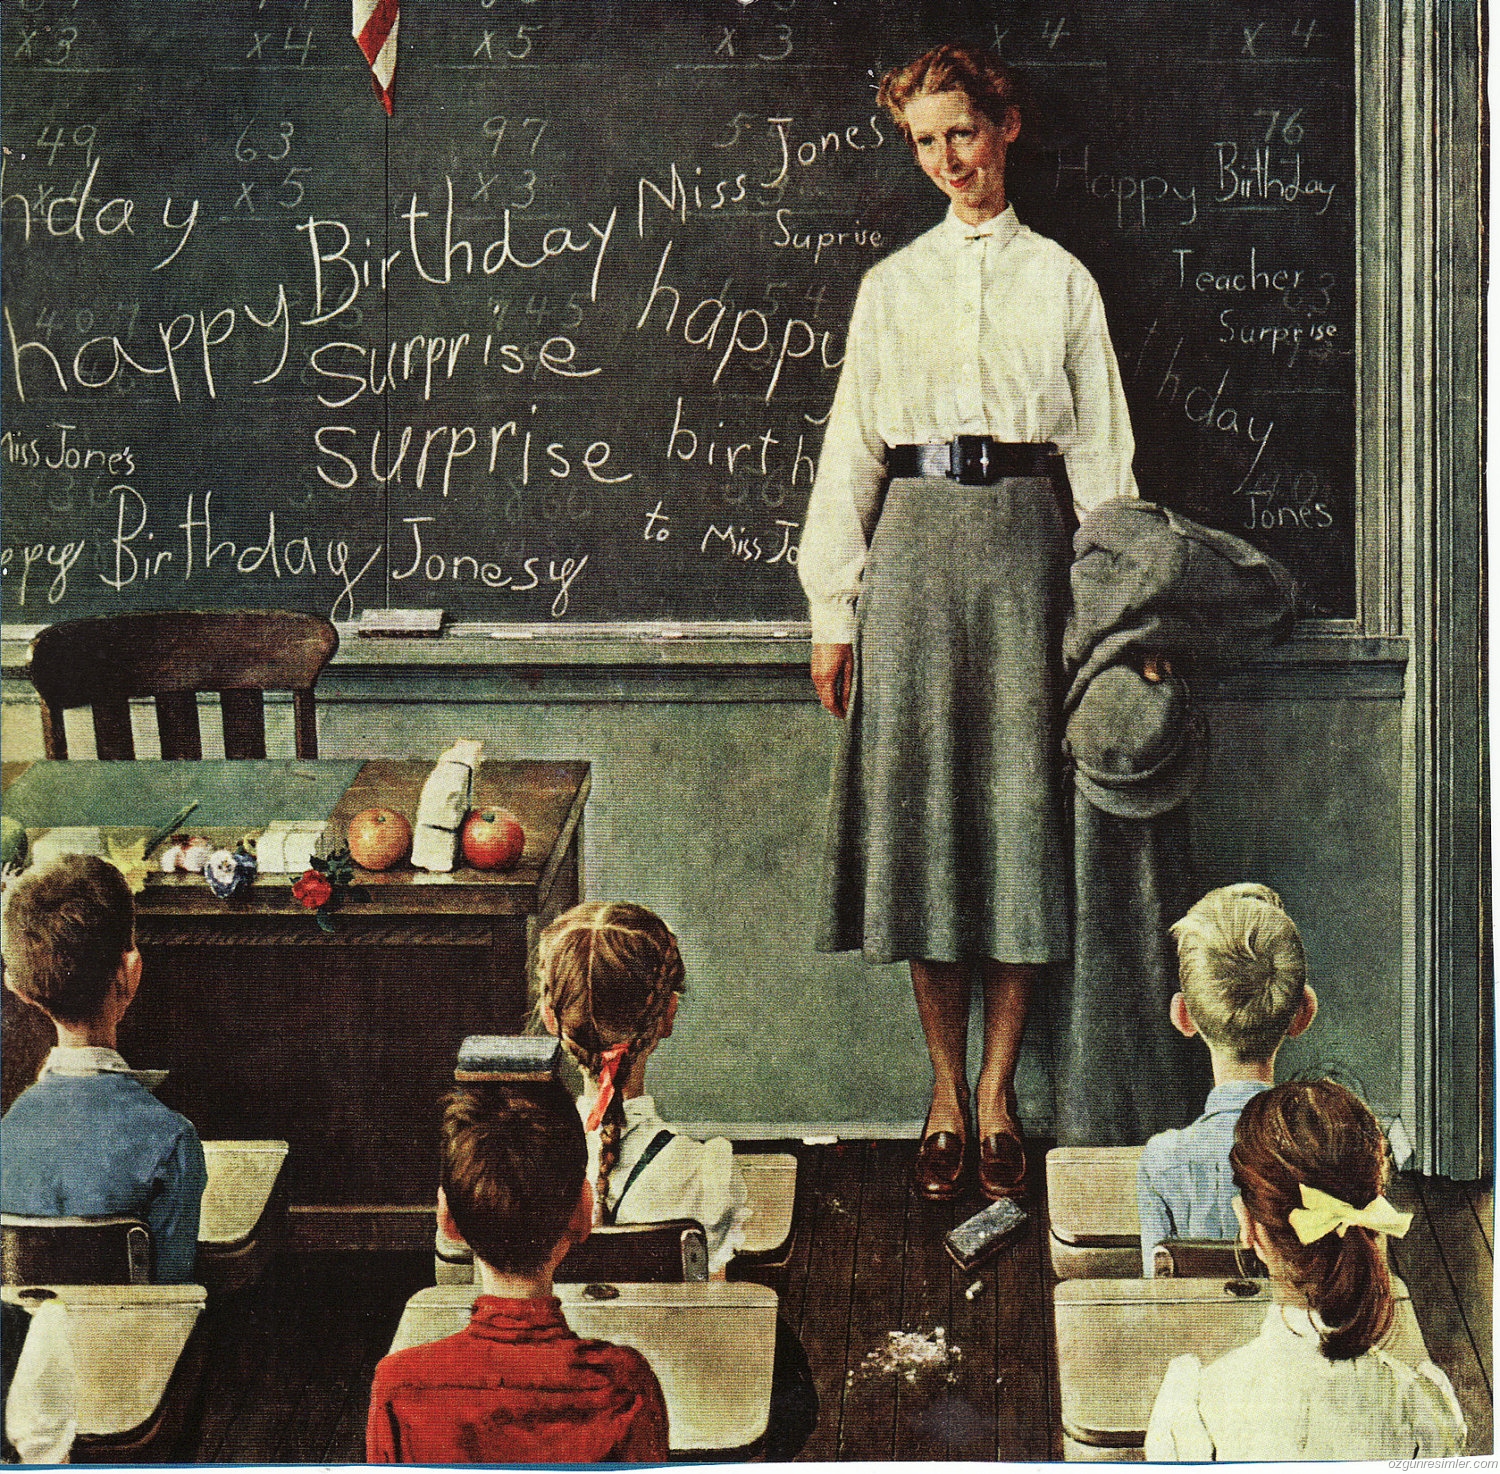 x 3 x 4 x 5 x 3 x 4 x 4
49 63 97 5 Jones 76
x 5 x 3 Miss Happy Birthday
nday Birthday Suprise
Teacher
happy Surprise happy Surprise
thday
Miss Jone's surprise birth
40
Jones
ppy Birthday Jonesy to Miss Jo
ozgunresimler.com